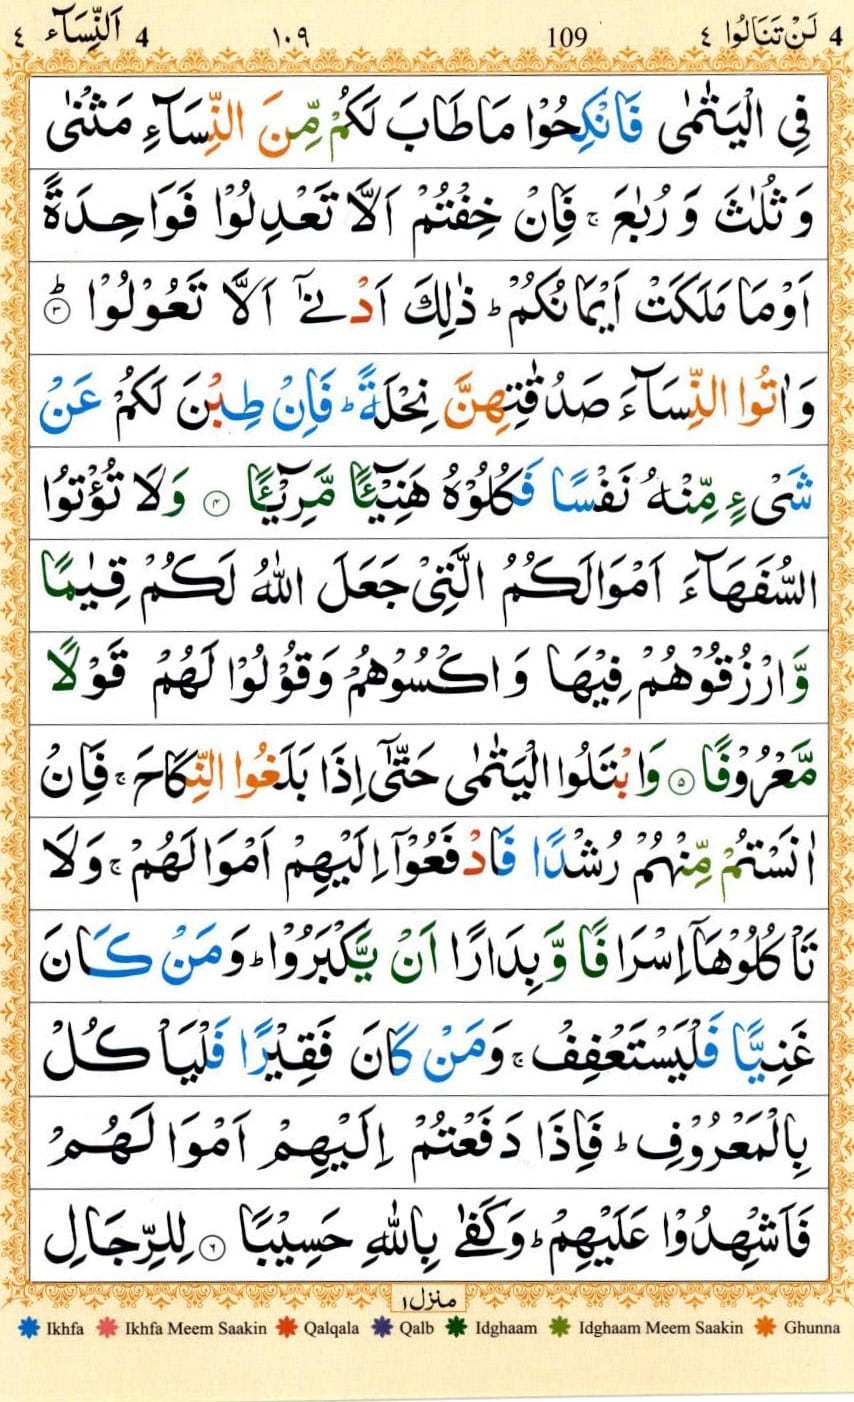 4 لَنْ تَنَالُوا ٤ 109 ١٠٩ 4 اَلنِّسَآء ٤
فِي الْيَتٰمٰى فَانْكِحُوْا مَا طَابَ لَكُمْ مِّنَ النِّسَآءِ مَثْنٰى
وَ ثُلٰثَ وَ رُبٰعَ ۚ فَاِنْ خِفْتُمْ اَلَّا تَعْدِلُوْا فَوَاحِدَةً
اَوْ مَا مَلَكَتْ اَيْمَانُكُمْ ؕ ذٰلِكَ اَدْنٰۤى اَلَّا تَعُوْلُوْا ؕ ۝۳
وَاٰتُوا النِّسَآءَ صَدُقٰتِهِنَّ نِحْلَةً ؕ فَاِنْ طِبْنَ لَكُمْ عَنْ
شَىْءٍ مِّنْهُ نَفْسًا فَكُلُوْهُ هَنِيْٓئًا مَّرِيْٓئًا ۝۴ وَلَا تُؤْتُوا
السُّفَهَآءَ اَمْوَالَكُمُ الَّتِىْ جَعَلَ اللّٰهُ لَكُمْ قِيٰمًا
وَّارْزُقُوْهُمْ فِيْهَا وَاكْسُوْهُمْ وَقُوْلُوْا لَهُمْ قَوْلًا
مَّعْرُوْفًا ۝۵ وَابْتَلُوا الْيَتٰمٰى حَتّٰۤى اِذَا بَلَغُوا النِّكَاحَ ۚ فَاِنْ
اٰنَسْتُمْ مِّنْهُمْ رُشْدًا فَادْفَعُوْۤا اِلَيْهِمْ اَمْوَالَهُمْ ۚ وَلَا
تَاْكُلُوْهَاۤ اِسْرَافًا وَّبِدَارًا اَنْ يَّكْبَرُوْا ؕ وَمَنْ كَانَ
غَنِيًّا فَلْيَسْتَعْفِفْ ۚ وَمَنْ كَانَ فَقِيْرًا فَلْيَاْكُلْ
بِالْمَعْرُوْفِ ؕ فَاِذَا دَفَعْتُمْ اِلَيْهِمْ اَمْوَالَهُمْ
فَاَشْهِدُوْا عَلَيْهِمْ ؕ وَكَفٰى بِاللّٰهِ حَسِيْبًا ۝۶ لِلرِّجَالِ
منزل ١
Ikhfa Ikhfa Meem Saakin Qalqala Qalb Idghaam Idghaam Meem Saakin Ghunna